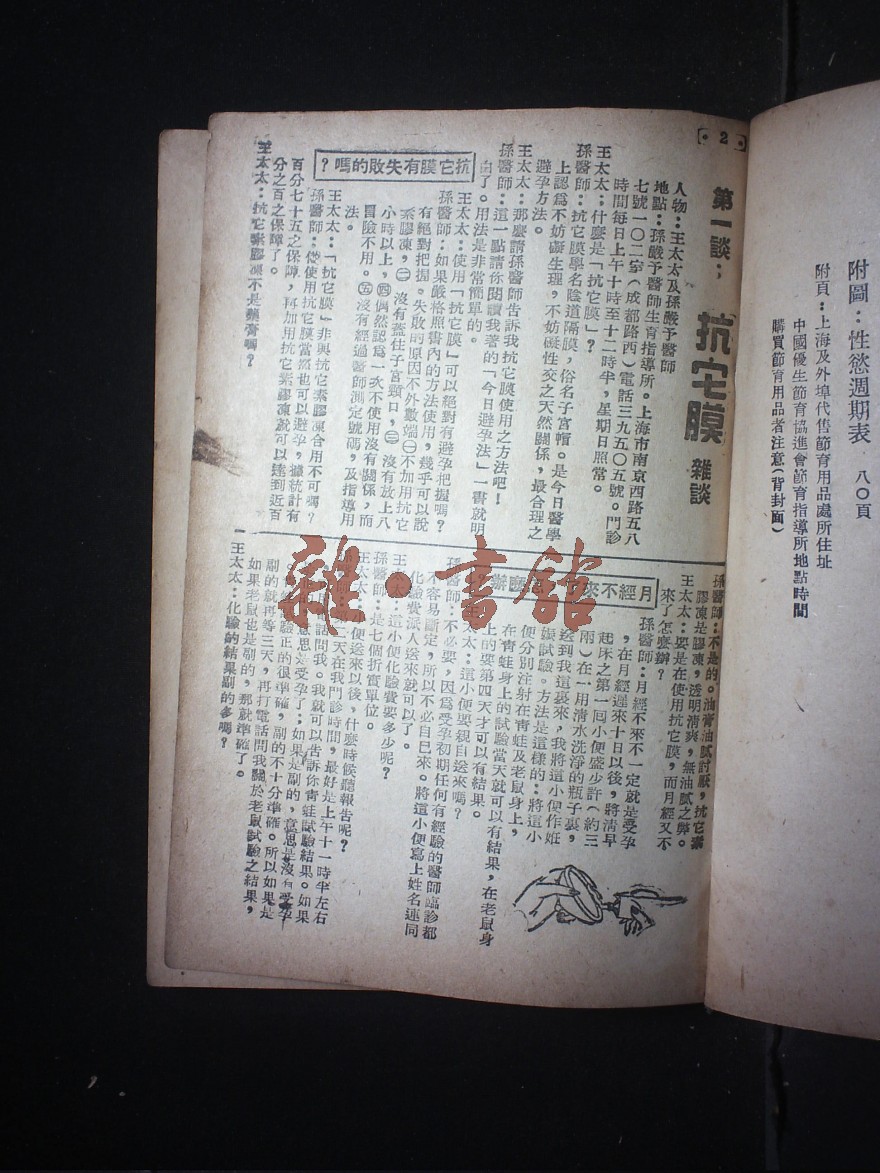 附圖：性慾週期表　八〇頁
附頁：上海及外埠代售節育用品處所住址
中國優生節育協進會節育指導所地點時間
購買節育用品者注意（背封面）
2
第一談；抗宅膜 雜談
人物：王太太及孫嚴予醫師
地點：孫嚴予醫師生育指導所。上海市南京西路五八
七號一〇二室（成都路西）電話三九五〇五號。門診
時間每日上午十時至十二時半，星期日照常。
王太太：什麼是「抗它膜」？
孫醫師：抗它膜學名陰道隔膜，俗名子宮帽。是今日醫學
上認爲不妨礙生理，不妨礙性交之天然關係，最合理之
避孕方法。
王太太：那麼請孫醫師告訴我抗它膜使用之方法吧！
孫醫師：這一點請你閱讀我著的「今日避孕法」一書就明
白了。用法是非常簡單的。
抗它膜有失敗的嗎？
王太太：使用「抗它膜」可以絕對有避孕把握嗎？
孫醫師：如果嚴格照書內的方法使用，幾乎可以說
有絕對把握。失敗的原因不外數端㊀不加用抗它
素膠凍，㊁沒有蓋住子宮頸口，㊂沒有放上八
小時以上，㊃偶然認爲一次不使用沒有關係，而
冒險不用。㊄沒有經過醫師測定號碼，及指導用
法。
王太太：「抗它膜」非與抗它素膠凍合用不可嗎？
孫醫師：單使用抗它膜當然也可以避孕，據統計有
百分七十五之保障，再加用抗它素膠凍就可以達到近百
分之百之保障了。
王太太：抗它素膠凍不是藥膏嗎？
孫醫師：不是的。油膏油膩討厭，抗它素
膠凍是膠凍，透明清爽，無油膩之弊。
王太太：要是在使用抗它膜，而月經又不
來了怎麼辦？
月經不來怎麼辦
孫醫師：月經不來不一定就是受孕
，在月經遲來十日以後，將清早
起床之第一回小便盛少許（約三
兩）在一用清水洗淨的瓶子裏，
送到我這裏來，我將這小便作姙
娠試驗。方法是這樣的：將這小
便分別注射在青蛙及老鼠身上，
在青蛙身上的試驗當天就可以有結果，在老鼠身
上的要第四天才可以有結果。
王太太：這小便要親自送來嗎？
孫醫師：不必要，因爲受孕初期任何有經驗的醫師臨診都
不容易斷定，所以不必自已來。將這小便寫上姓名連同
化驗費派人送來就可以了。
王太太：這小便化驗費要多少呢？
孫醫師：是七個折實單位。
王太太：小便送來以後，什麼時候聽報告呢？
三天在我門診時間，最好是上午十一時半左右
打電話問我。我就可以告訴你青蛙試驗結果。如果
意思是受孕了；如果是副的，意思是沒有受孕
。青蛙試驗正的很準確，副的不十分準確。所以如果是
副的就再等三天，再打電話問我關於老鼠試驗之結果，
如果老鼠也是副的，那就準確了。
王太太：化驗的結果副的多嗎？
雜·書館